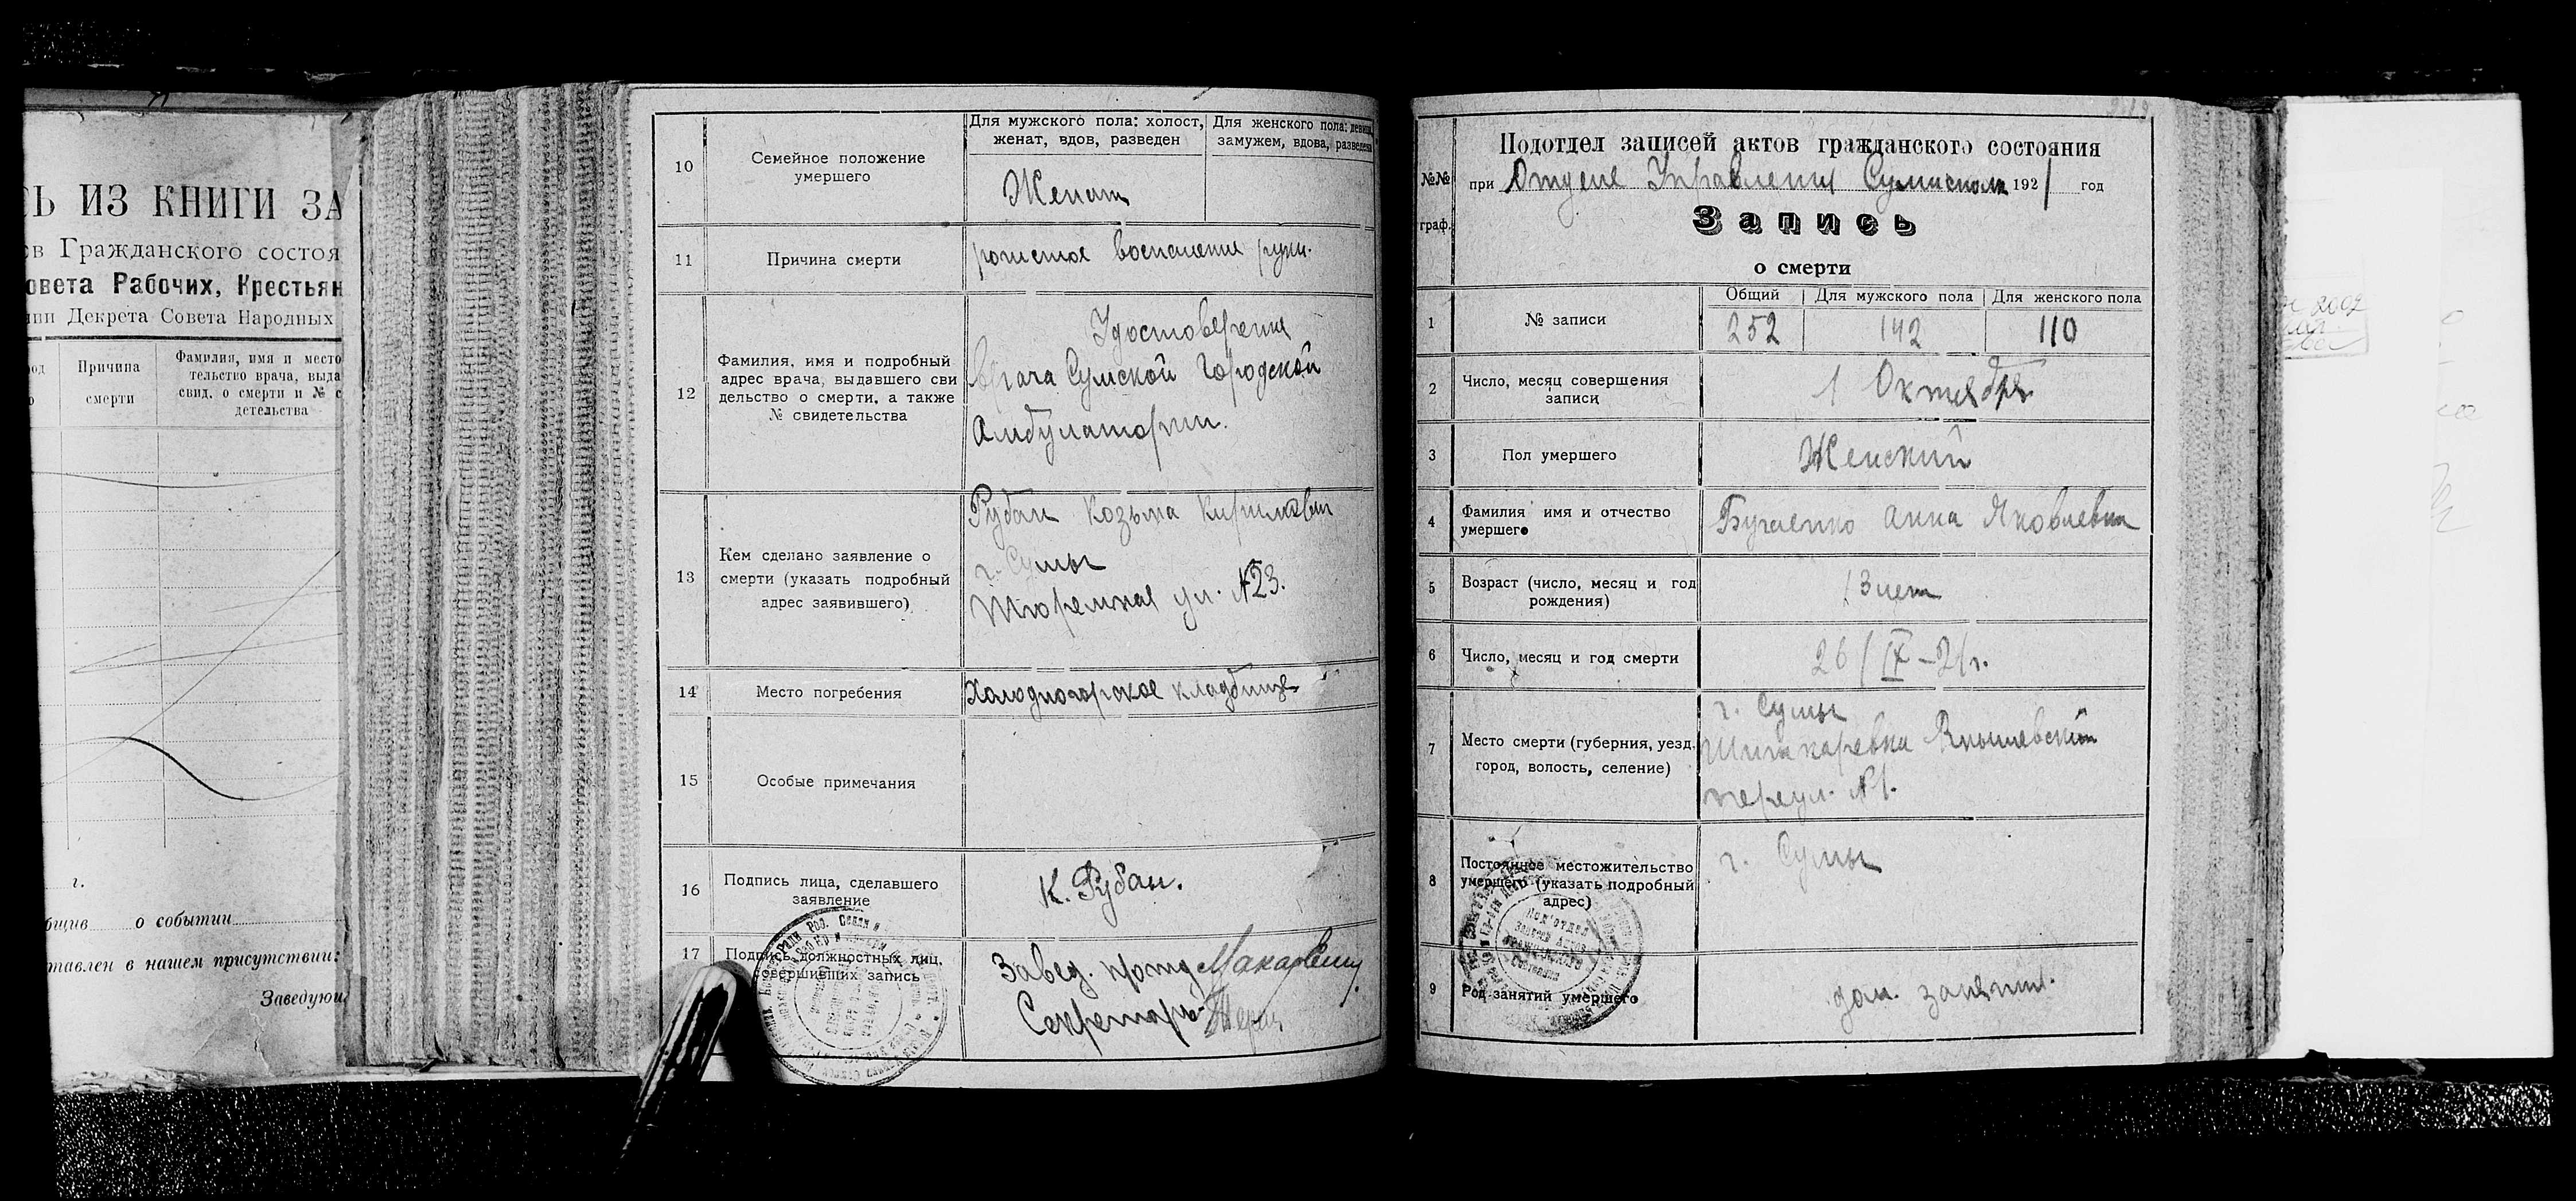 СЬ ИЗ КНИГИ ЗА
ов Гражданского состоя
овета Рабочих, Крестьян
нии Декрета Совета Народных
Причина
смерти
Фамилия, имя и место
тельство врача, выда
свид. о смерти и № с
детельства
г.
бщив о событии
тавлен в нашем присутствии:
Заведующ
10
Семейное положение
умершего
Для мужского пола: холост,
женат, вдов, разведен
Для женского пола: девица,
замужем, вдова, разведена
Женат
11
Причина смерти
рожистое воспаление руки.
12
Фамилия, имя и подробный
адрес врача, выдавшего сви
дельство о смерти, а также
№ свидетельства
Удостоверение
врача Сумской Городской
Амбулатории.
13
Кем сделано заявление о
смерти (указать подробный
адрес заявившего)
Рубан Козьма Кириллович
г. Сумы
Тюремная ул. №23.
14
Место погребения
Холодногорское кладбище
15
Особые примечания
16
Подпись лица, сделавшего
заявление
К. Рубан.
17
Подпись должностных лиц,
совершивших запись
Завед. п/отд
Секретарь
№№
граф.
Подотдел записей актов гражданского состояния
при Отделе Управления Сумисполк 1921 год
Запись
о смерти
1
№ записи
Общий
Для мужского пола
Для женского пола
252
142
110
2
Число, месяц совершения
записи
1 Октября
3
Пол умершего
Женский
4
Фамилия имя и отчество
умершего
Анна Яковлевна
5
Возраст (число, месяц и год
рождения)
13 лет
6
Число, месяц и год смерти
26/IX–21г.
7
Место смерти (губерния, уезд,
город, волость, селение)
г. Сумы
переул. №1.
8
Постоянное местожительство
умершего (указать подробный
адрес)
г. Сумы
9
Род занятий умершего
дом. занятия.
Под'отдел
Записи Актов
Гражданского
Состояния